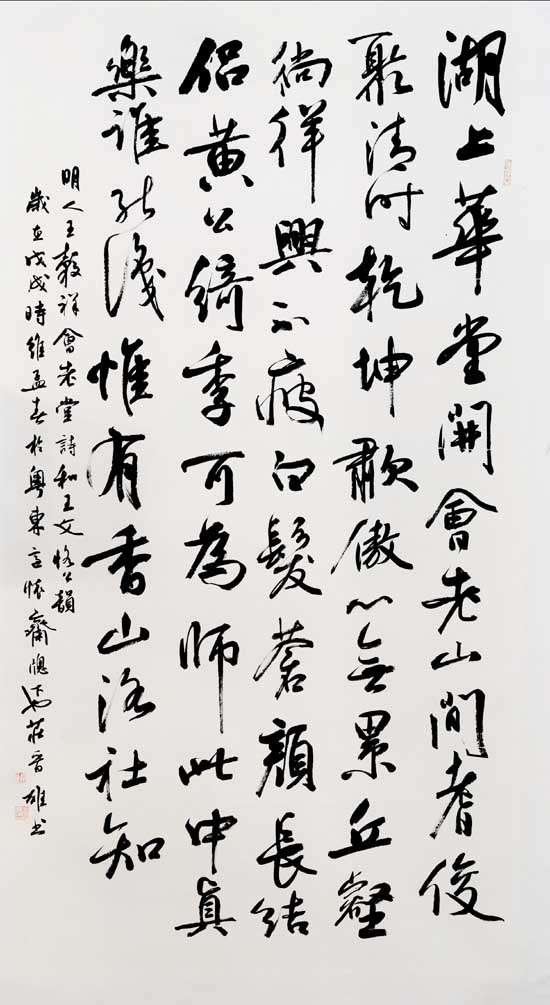 湖上華堂開會老山間耆俊
聚清时乾坤歗傲心無累丘壑
徜徉興不疲白髮蒼顏長結
侶黃公綺季可為師此中眞
樂誰能識惟有香山洛社知
明人王穀祥會老堂詩和王文恪公韻
歲在戊戌時維孟春於粵東懷齋牕下莊晉雄书